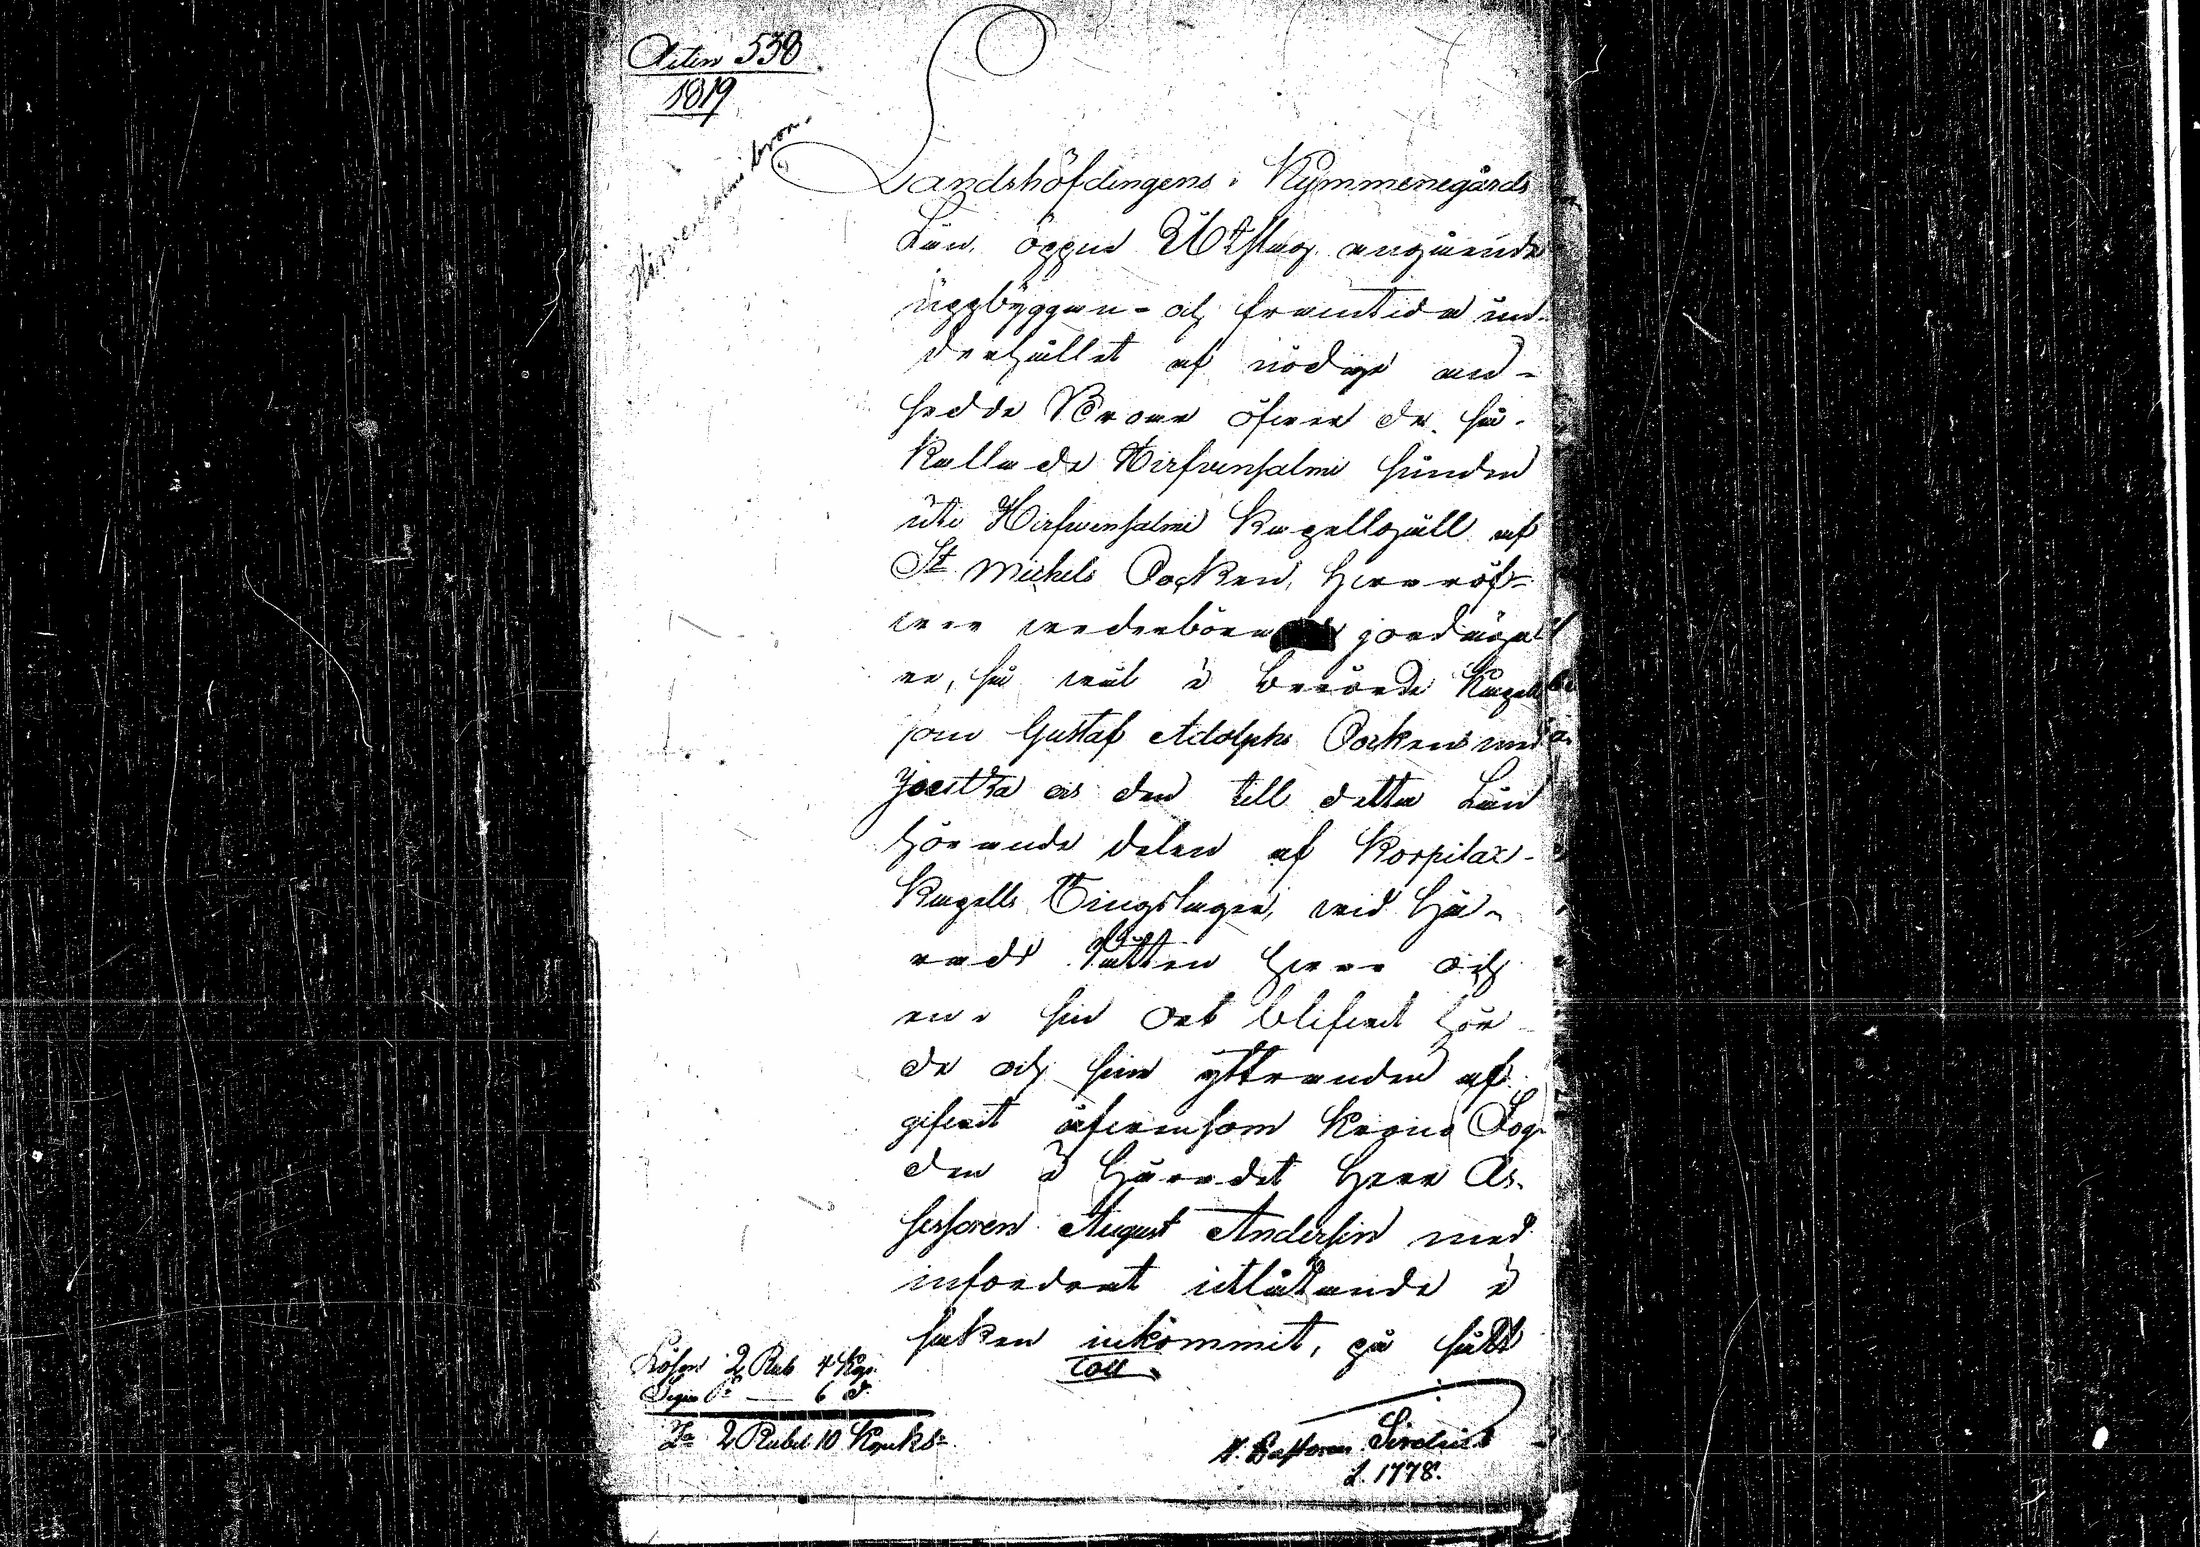 Acten 538
1819
Hirvensalmi bron.
Landshöfdingens i Kymmenegårds
Län, öppne Utslag angående
uppbyggan- och framtida un-
derhållet af nödige an-
sedde Broar öfver de så
kallade Hirfvensalmi sunden
uti Hirfvensalmi Kapellgäll af
St Michels Socken, hvaröf-
ver vederbörande jordägar
er, så väl i berörde Kapell
som Gustaf Adolphs Socken med
Joutsa och den till detta Län
hörande delen af Korpilax
Kapells Tingslager, vid Hä-
rads Rätten hvar och
en i sin ort blifvit hör
de och sine yttranden af
gifvit äfvensom Krono Fog
den i Häradet Herr As-
sessoren August Andersin med
infordrat utlåtande i
saken inkommit, på sätt
Coll
Lösen 2 Rub 4 Kop.
6 d:o
Sa 2 Rubel 10 Kopek Sr
V. Pastoren Sirelius
f. 1778.